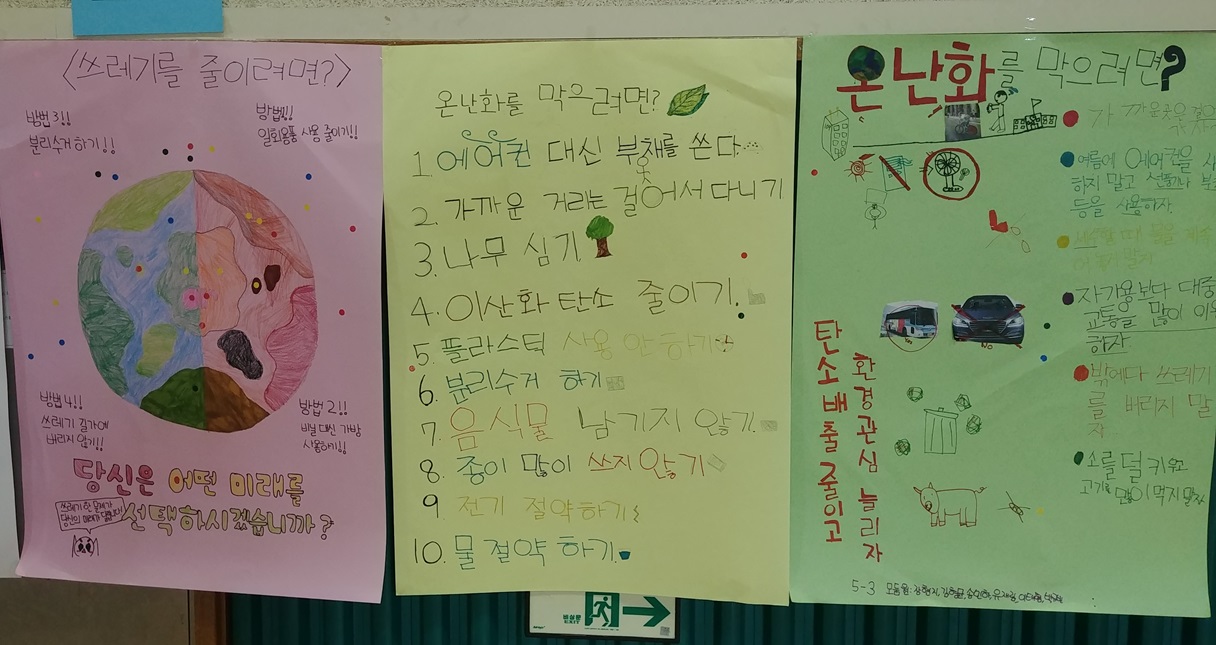 <쓰레기를 줄이려면?>
방법3!!
분리수거 하기!!
방법1!!
일회용품 사용 줄이기!!
방법4!!
쓰레기 길가에
버리지 않기!!
방법2!!
비닐 대신 가방
사용하기!!
당신은 어떤 미래를
선택하시겠습니까?
온난화를 막으려면?
1. 에어컨 대신 부채를 쓴다
2. 가까운 거리는 걸어서 다니기
3. 나무 심기
4. 이산화탄소 줄이기.
5. 플라스틱 사용 안하기
6. 분리수거 하기
7. 음식물 남기지 않기.
8. 종이 많이 쓰지 않기
9 전기 절약하기
10. 물 절약 하기.
온난화를 막으려면?
가까운곳은 걸어
여름에 에어컨을 사
하지 말고 선풍기나 부
등을 사용하자.
자가용보다 대중
교통을 많이 이
하자
밖에다 쓰레기
를 버리지 말
자
소를 덜 키우고
고기를 많이 먹지 말자
탄소배출 줄이고
환경관심 늘리자
5-3 모둠원:
비상문
EXIT